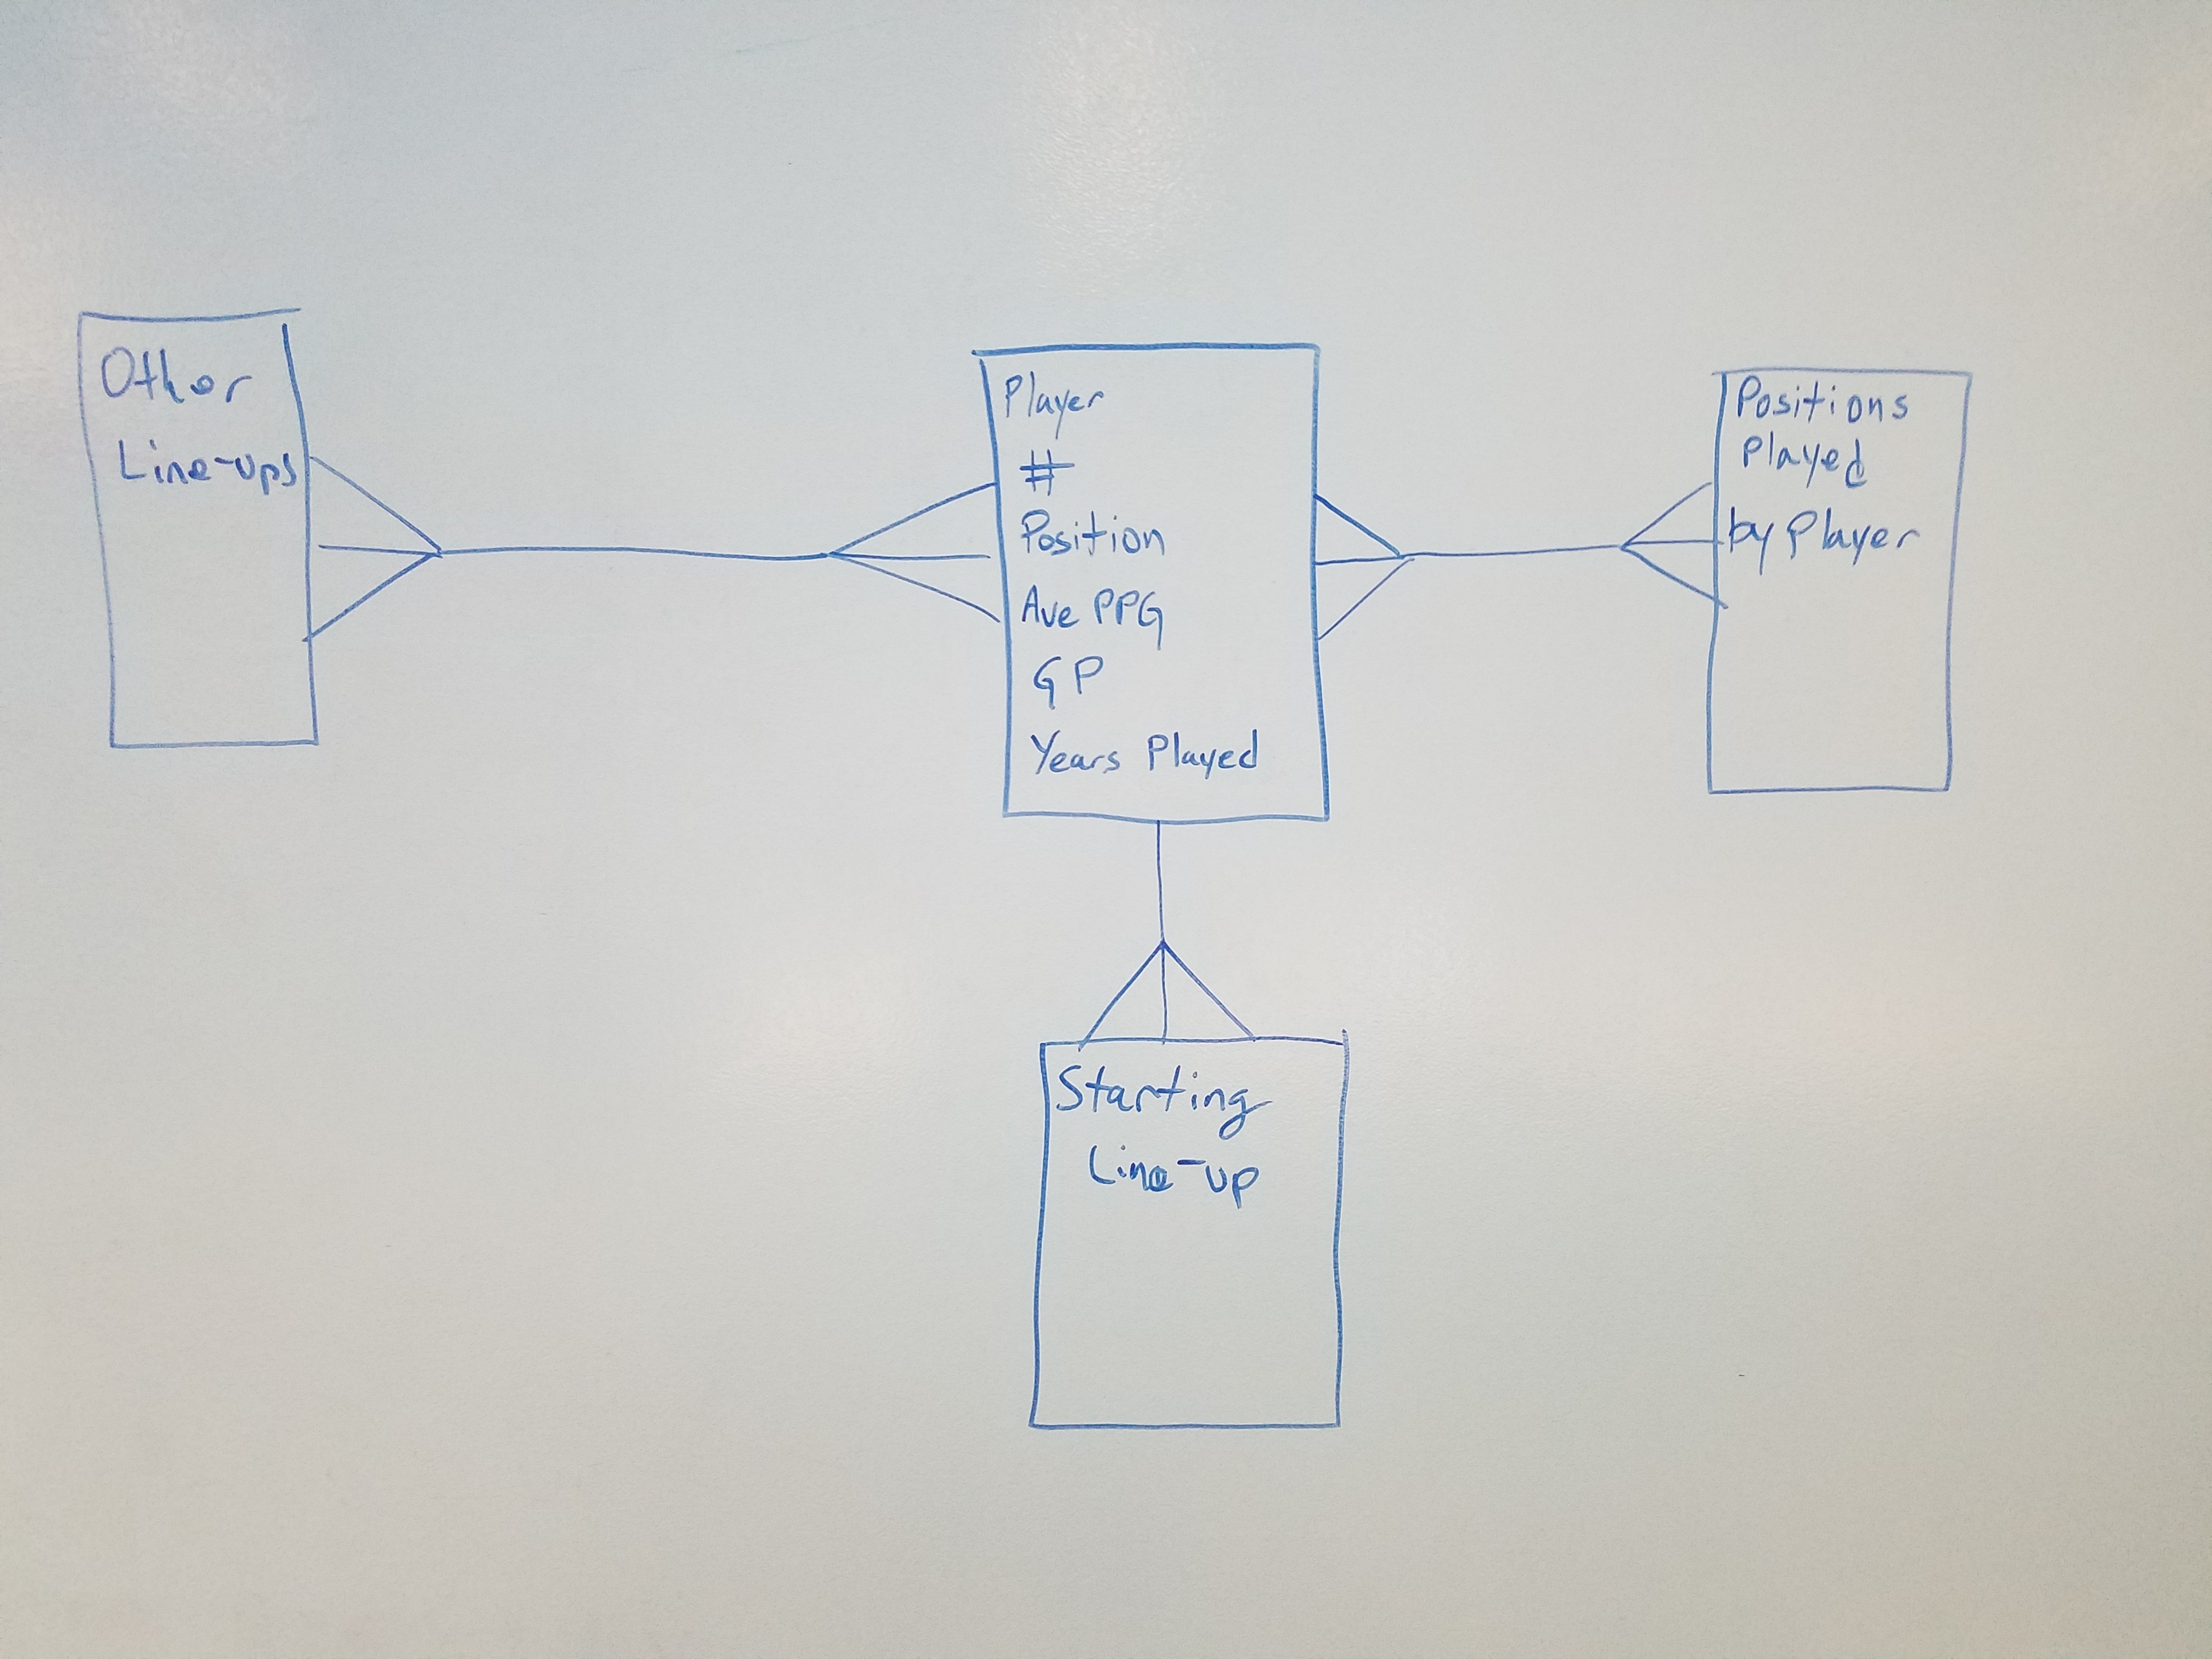 Other
Line-ups
Player
#
Position
Ave PPG
GP
Years Played
Positions
Played
by Player
Starting
Line-up